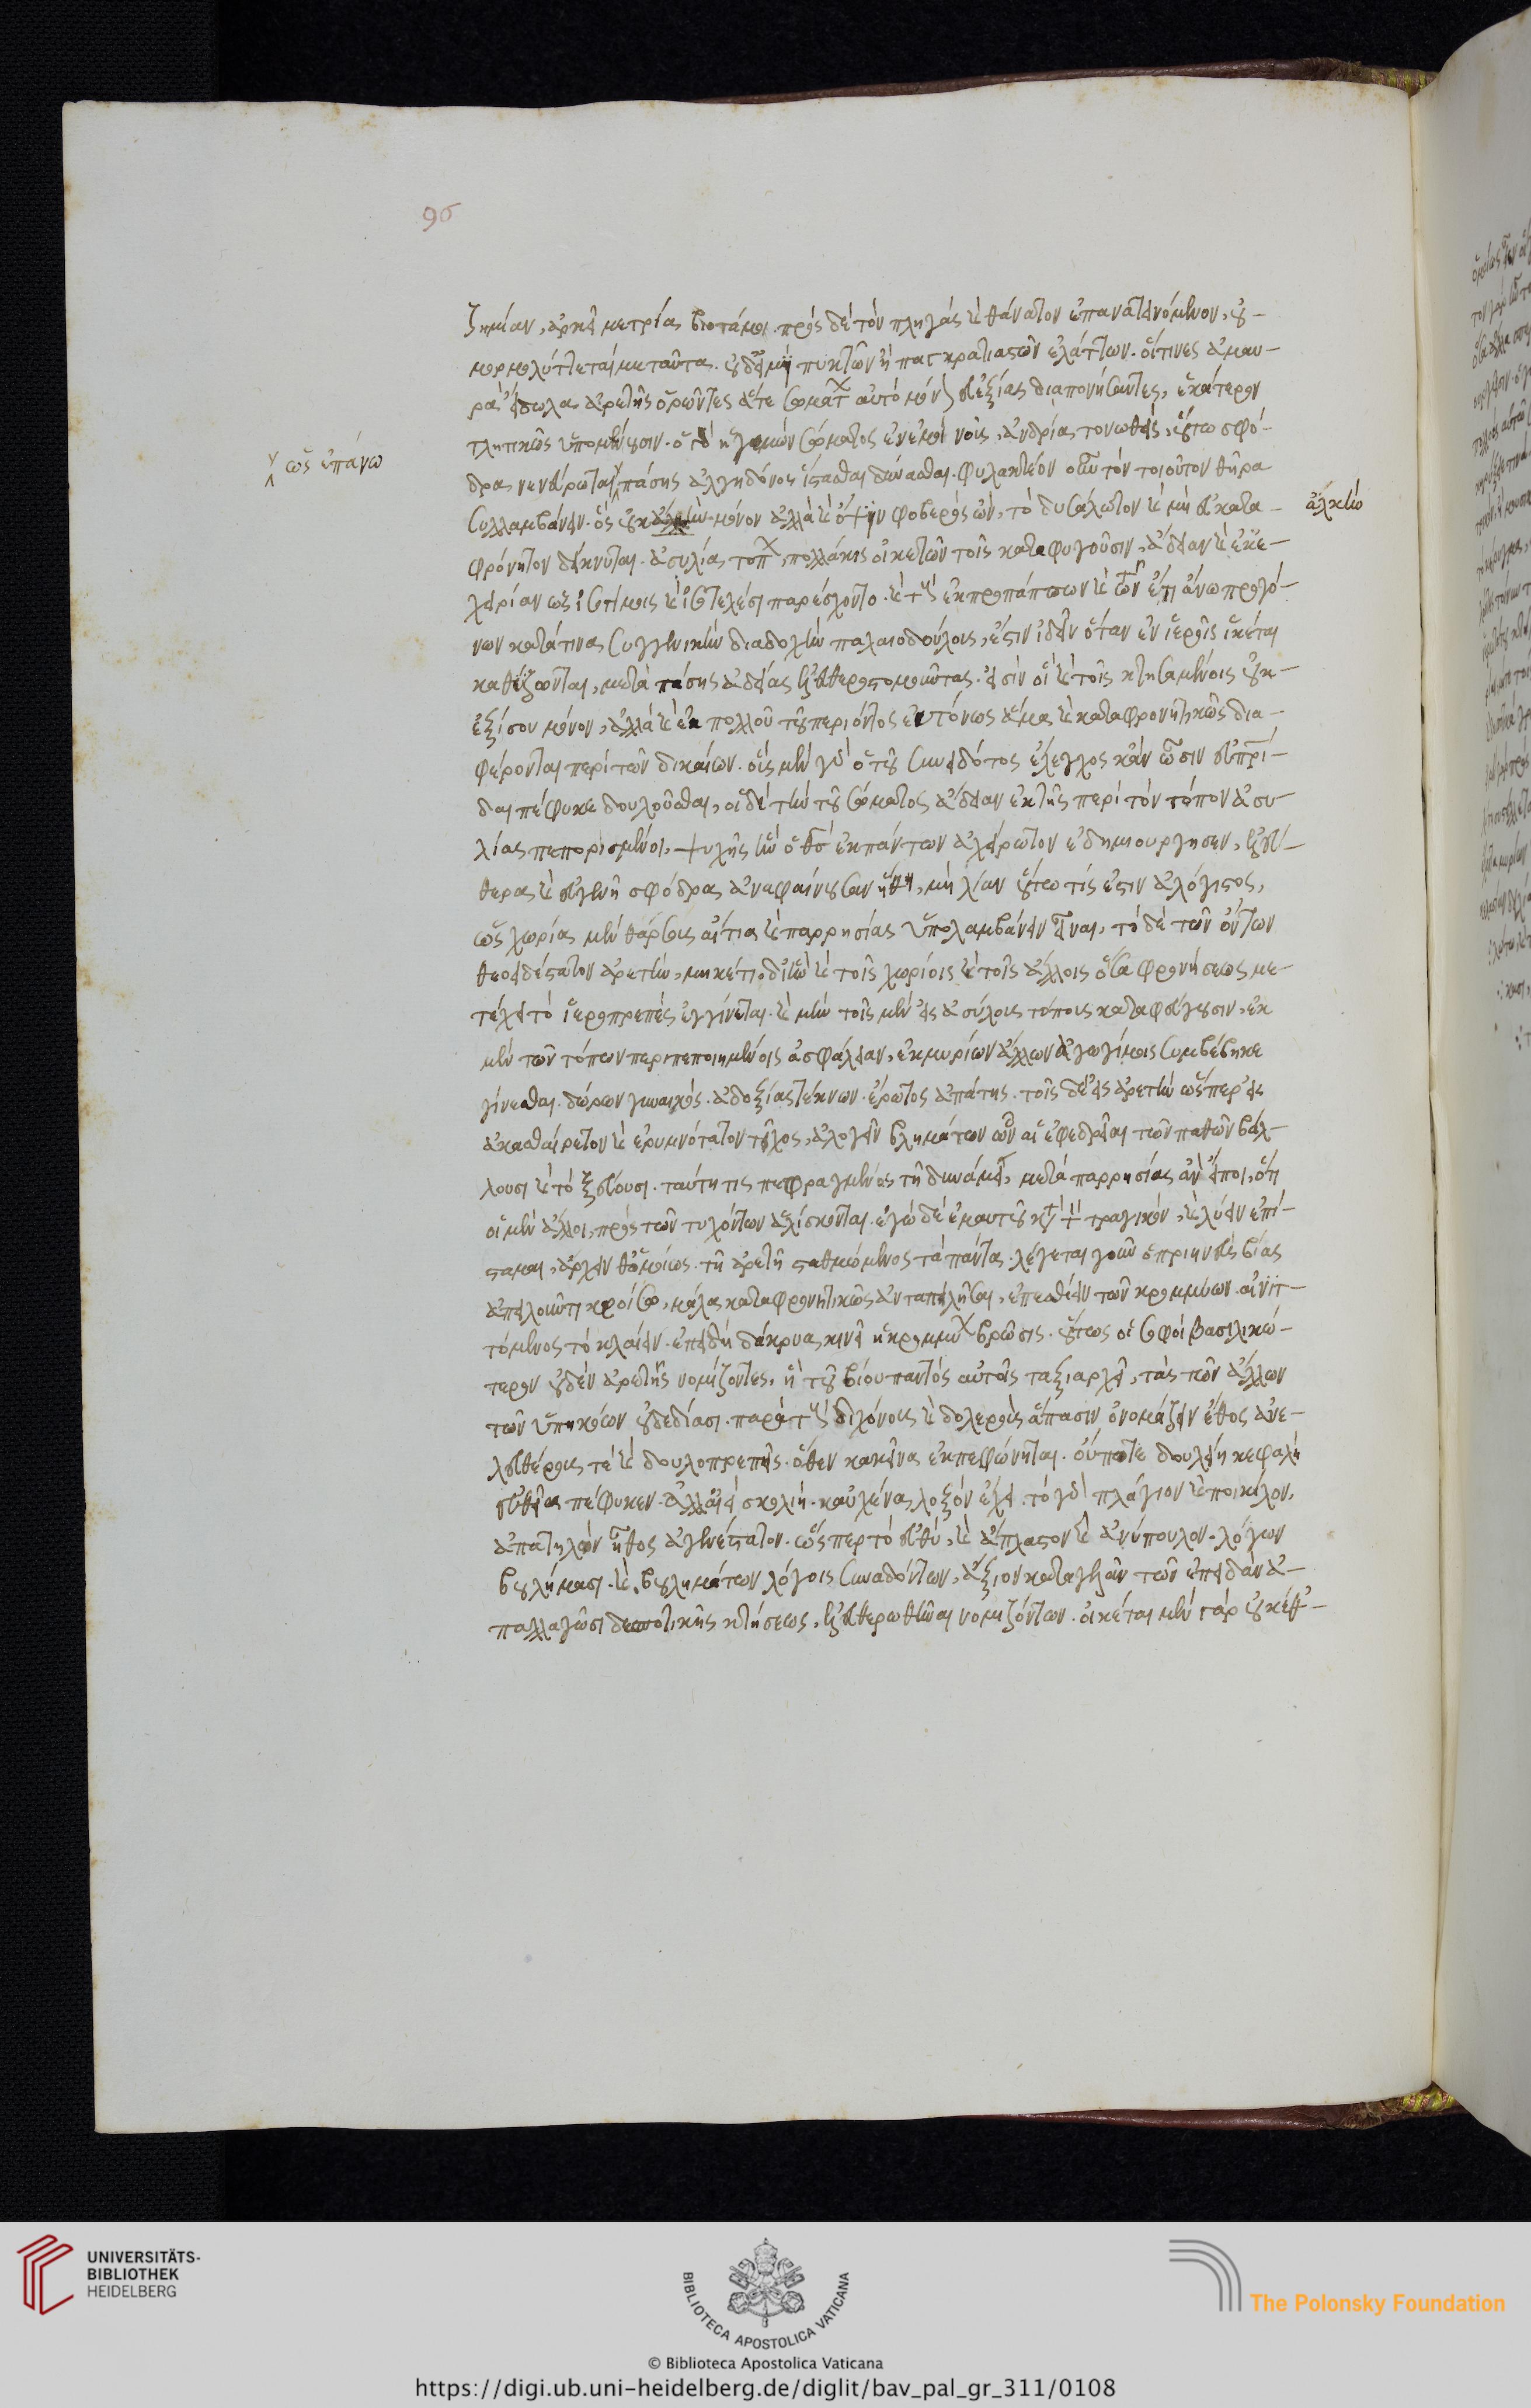 96
ζημίαν, ἀρκεῖ μετρία βιοτά μοι. πρὸς δὲ τὸν πληγὰς καὶ θάνατον ἐπανατεινόμενον, οὐ-
μορμολύττεταί με ταῦτα. οὐδ' εἰμὶ πυκτῶν ἢ παγκρατιαστῶν ἐλάττων. οἵτινες ἀμαυ-
ρὰ εἴδωλα ἀρετῆς ὁρῶντες ἅτε σωμάτων αὐτὸ μόνον εὐεξίας διαπονήσαντες, ἑκάτερον
τλητικῶς ὑπομένουσιν. ὁ γὰρ ἡγεμὼν σώματος ἐν ἐμοὶ νοῦς, ἀνδρία τονωθεὶς, οὕτω σφό-
ὡς ἐπάνω
δρα νενεύρωται πάσης ἀλγηδόνος ἵστασθαι δύνασθαι. φυλακτέον οὖν τὸν τοιοῦτον θῆρα
συλλαμβάνειν. ὃς οὐκ μόνον ἀλλὰ καὶ ὄψιν φοβερὸς ὢν, τὸ δυσάλωτον καὶ μὴ εὐκατα-
ἀλκὴν
φρόνητον δείκνυται. ἀσυλία τόπων, πολλάκις οἰκετῶν τοῖς καταφυγοῦσιν, ἄδειαν καὶ ἐκε-
χειρίαν ὡς ἰσοτίμοις καὶ ἰσοτελέσι παρέσχοντο. καὶ τοὺς ἐκ προπάππων καὶ τῶν ἔτι ἄνω προγό-
νων κατά τινα συγγενικὴν διαδοχὴν παλαιοδούλους, ἔστιν ἰδεῖν ὅταν ἐν ἱεροῖς ἱκέται
καθέζωνται, μετὰ πάσης ἀδείας ἐλευθεροστομοῦντας. εἰσὶν οἳ καὶ τοῖς κτησαμένοις οὐκ-
ἐξίσου μόνον, ἀλλὰ καὶ ἐκ πολλοῦ τοῦ περιόντος εὐτόνως ἅμα καὶ καταφρονητικῶς δια-
φέρονται περὶ τῶν δικαίων. οὓς μὲν γὰρ ὁ τοῦ συνειδότος ἔλεγχος κἂν ὦσιν εὐπατρί-
δαι πέφυκε δουλοῦσθαι, οἱ δὲ τὴν τοῦ σώματος ἄδειαν ἐκ τῆς περὶ τὸν τόπον ἀσυ-
λίας πεπορισμένοι, ψυχῆς ἣν ὁ θεὸς ἐκ πάντων ἀχείρωτον ἐδημιούργησεν, ἐλευ-
θερα καὶ εὐγενῆ σφόδρα ἀναφαίνουσαν ἤθη, μὴ λίαν οὕτω τίς ἐστιν ἀλόγιστος,
ὡς χωρία μὲν θάρσους αἴτια καὶ παρρησίας ὑπολαμβάνειν εἶναι, τὸ δὲ τῶν ὄντων
θεοειδέστατον ἀρετὴν, μηκέτι, δι' ἣν καὶ τοῖς χωρίοις καὶ τοῖς ἄλλοις ὅσα φρονήσεως με-
τέχει τὸ ἱεροπρεπὲς ἐγγίνεται. καὶ μὴν τοῖς μὲν εἰς ἀσύλους τόπους καταφεύγουσιν, ἐκ
μὲν τῶν τόπων περιπεποιημένοις ἀσφάλειαν, ἐκ μυρίων ἄλλων ἀγωγίμοις συμβέβηκε
γίνεσθαι. δώρων γυναικὸς. ἀδοξίας τέκνων. ἔρωτος ἀπάτης. τοῖς δὲ εἰς ἀρετὴν ὥσπερ εἰς
ἀκαθαίρετον καὶ ἐρυμνότατον τεῖχος, ἀλογεῖν βλημάτων ὧν αἱ ἐφεδρεῖαι τῶν παθῶν βάλ-
λουσι καὶ τοξεύουσι. ταύτῃ τις πεφραγμένος τῇ δυνάμει, μετὰ παρρησίας ἂν εἴποι, ὅτι
οἱ μὲν ἄλλοι, πρὸς τῶν τυχόντων ἁλίσκονται. ἐγὼ δὲ ἐμαυτοῦ κατὰ τὸν τραγικὸν, καὶ κλύειν ἐπί-
σταμαι, ἄρχειν θ' ὁμοίως. τῇ ἀρετῇ σταθμώμενος τὰ πάντα. λέγεται γοῦν ὁ πριηνεὺς βίας
ἀπειλοῦντι κροίσῳ, μάλα καταφρονητικῶς ἀνταπειλῆσαι, ἐπεσθίειν τῶν κρομμύων. αἰνιτ-
τόμενος τὸ κλαίειν. ἐπειδὴ δάκρυα κινεῖ ἡ κρομμύων βρῶσις. οὕτως οἱ σοφοὶ βασιλικώ-
τερον οὐδὲν ἀρετῆς νομίζοντες, ἣ τοῦ βίου παντὸς αὐτοῖς ταξιαρχεῖ, τὰς τῶν ἄλλων
τῶν ὑπηκόων οὐ δεδίασι. παρὰ τοὺς διχόνους καὶ δολεροὺς ἅπασιν ὀνομάζειν ἔθος ἀνε-
λευθέρους τὲ καὶ δουλοπρεπεῖς. ὅθεν κἀκεῖνα ἐκπεφώνηται. οὔποτε δουλείη κεφαλὴ
εὐθεῖα πέφυκεν. ἀλλ' αἰεὶ σκολιὴ. καὐχένα λοξὸν ἔχει. τὸ γὰρ πλάγιον καὶ ποικίλον,
ἀπατηλὸν ἦθος ἀγενέστατον. ὥσπερ τὸ εὐθὺ, καὶ ἄπλαστον καὶ ἀνύπουλον. λόγων
βουλήμασι. καὶ βουλημάτων λόγοις συναδόντων, ἄξιον καταγελᾶν τῶν ἐπειδὰν ἀ-
παλλαγῶσι δεσποτικῆς κτήσεως, ἐλευθερωθῆναι νομιζόντων. οἰκέται μὲν γὰρ οὐκέθ'-
UNIVERSITÄTS-
BIBLIOTHEK
HEIDELBERG
BIBLIOTECA APOSTOLICA VATICANA
The Polonsky Foundation
© Biblioteca Apostolica Vaticana
https://digi.ub.uni-heidelberg.de/diglit/bav_pal_gr_311/0108